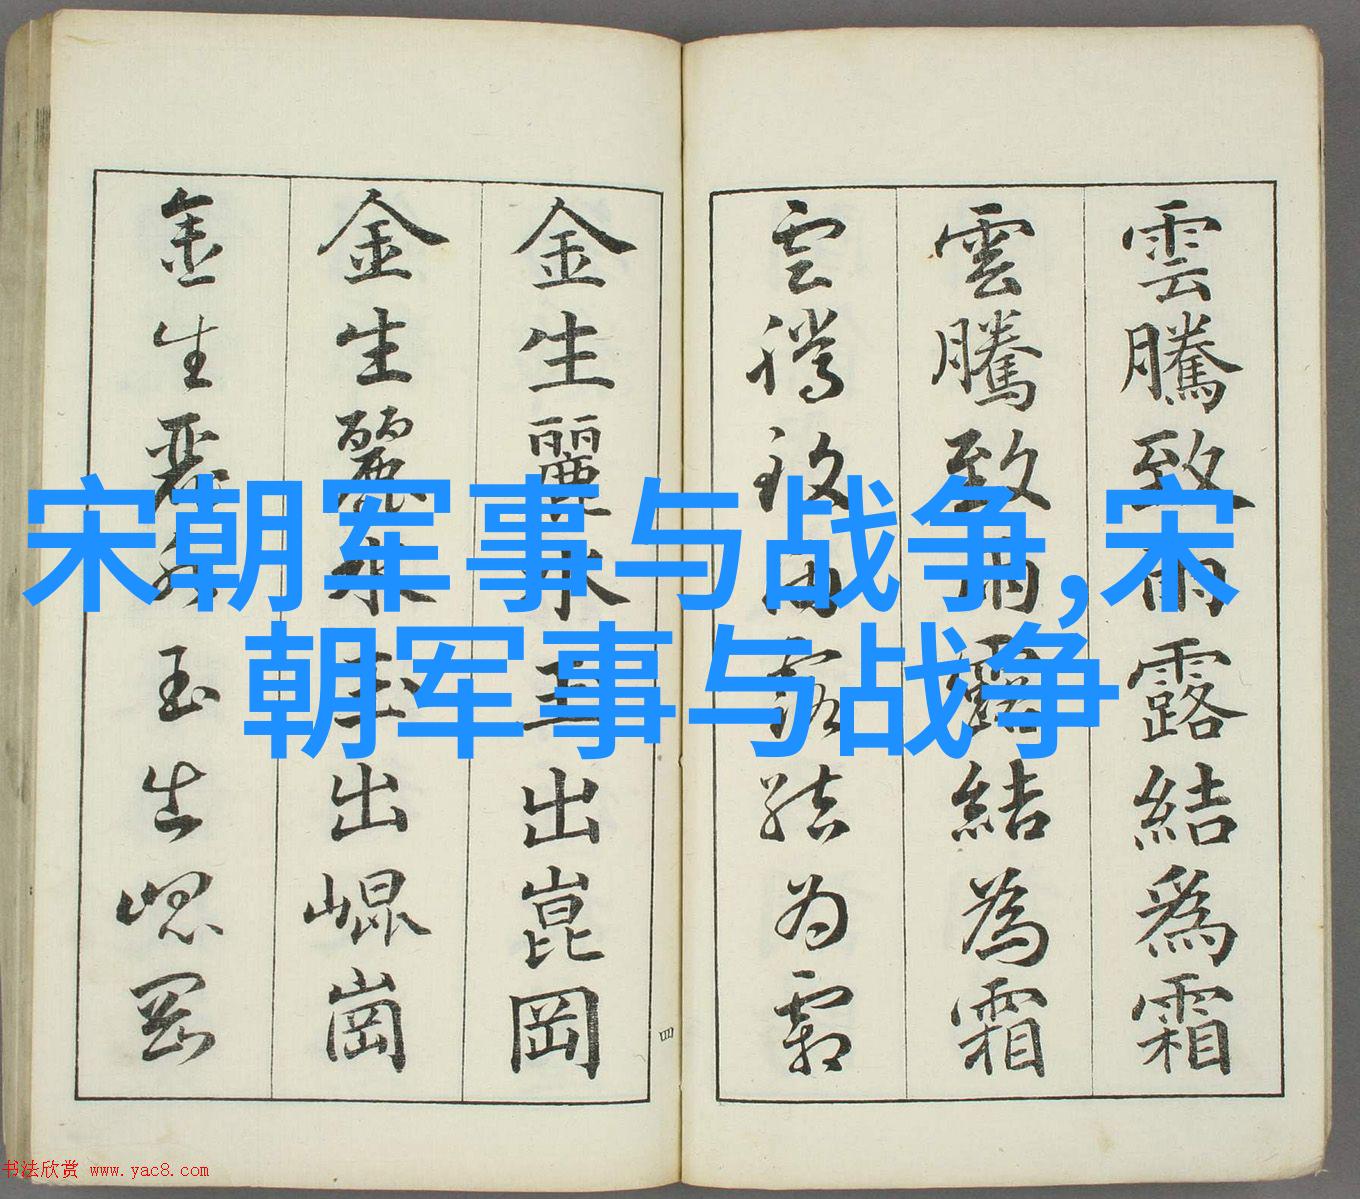 雲騰致雨露結為霜
雲騰致雨露結為霜
雲騰致雨露結為霜
金生麗水玉出崑岡
金生麗水玉出崐崗
金生麗水玉出崐岡
四
宋朝军事与战争,宋
朝军事与战争
书法欣赏 www.yac8.com